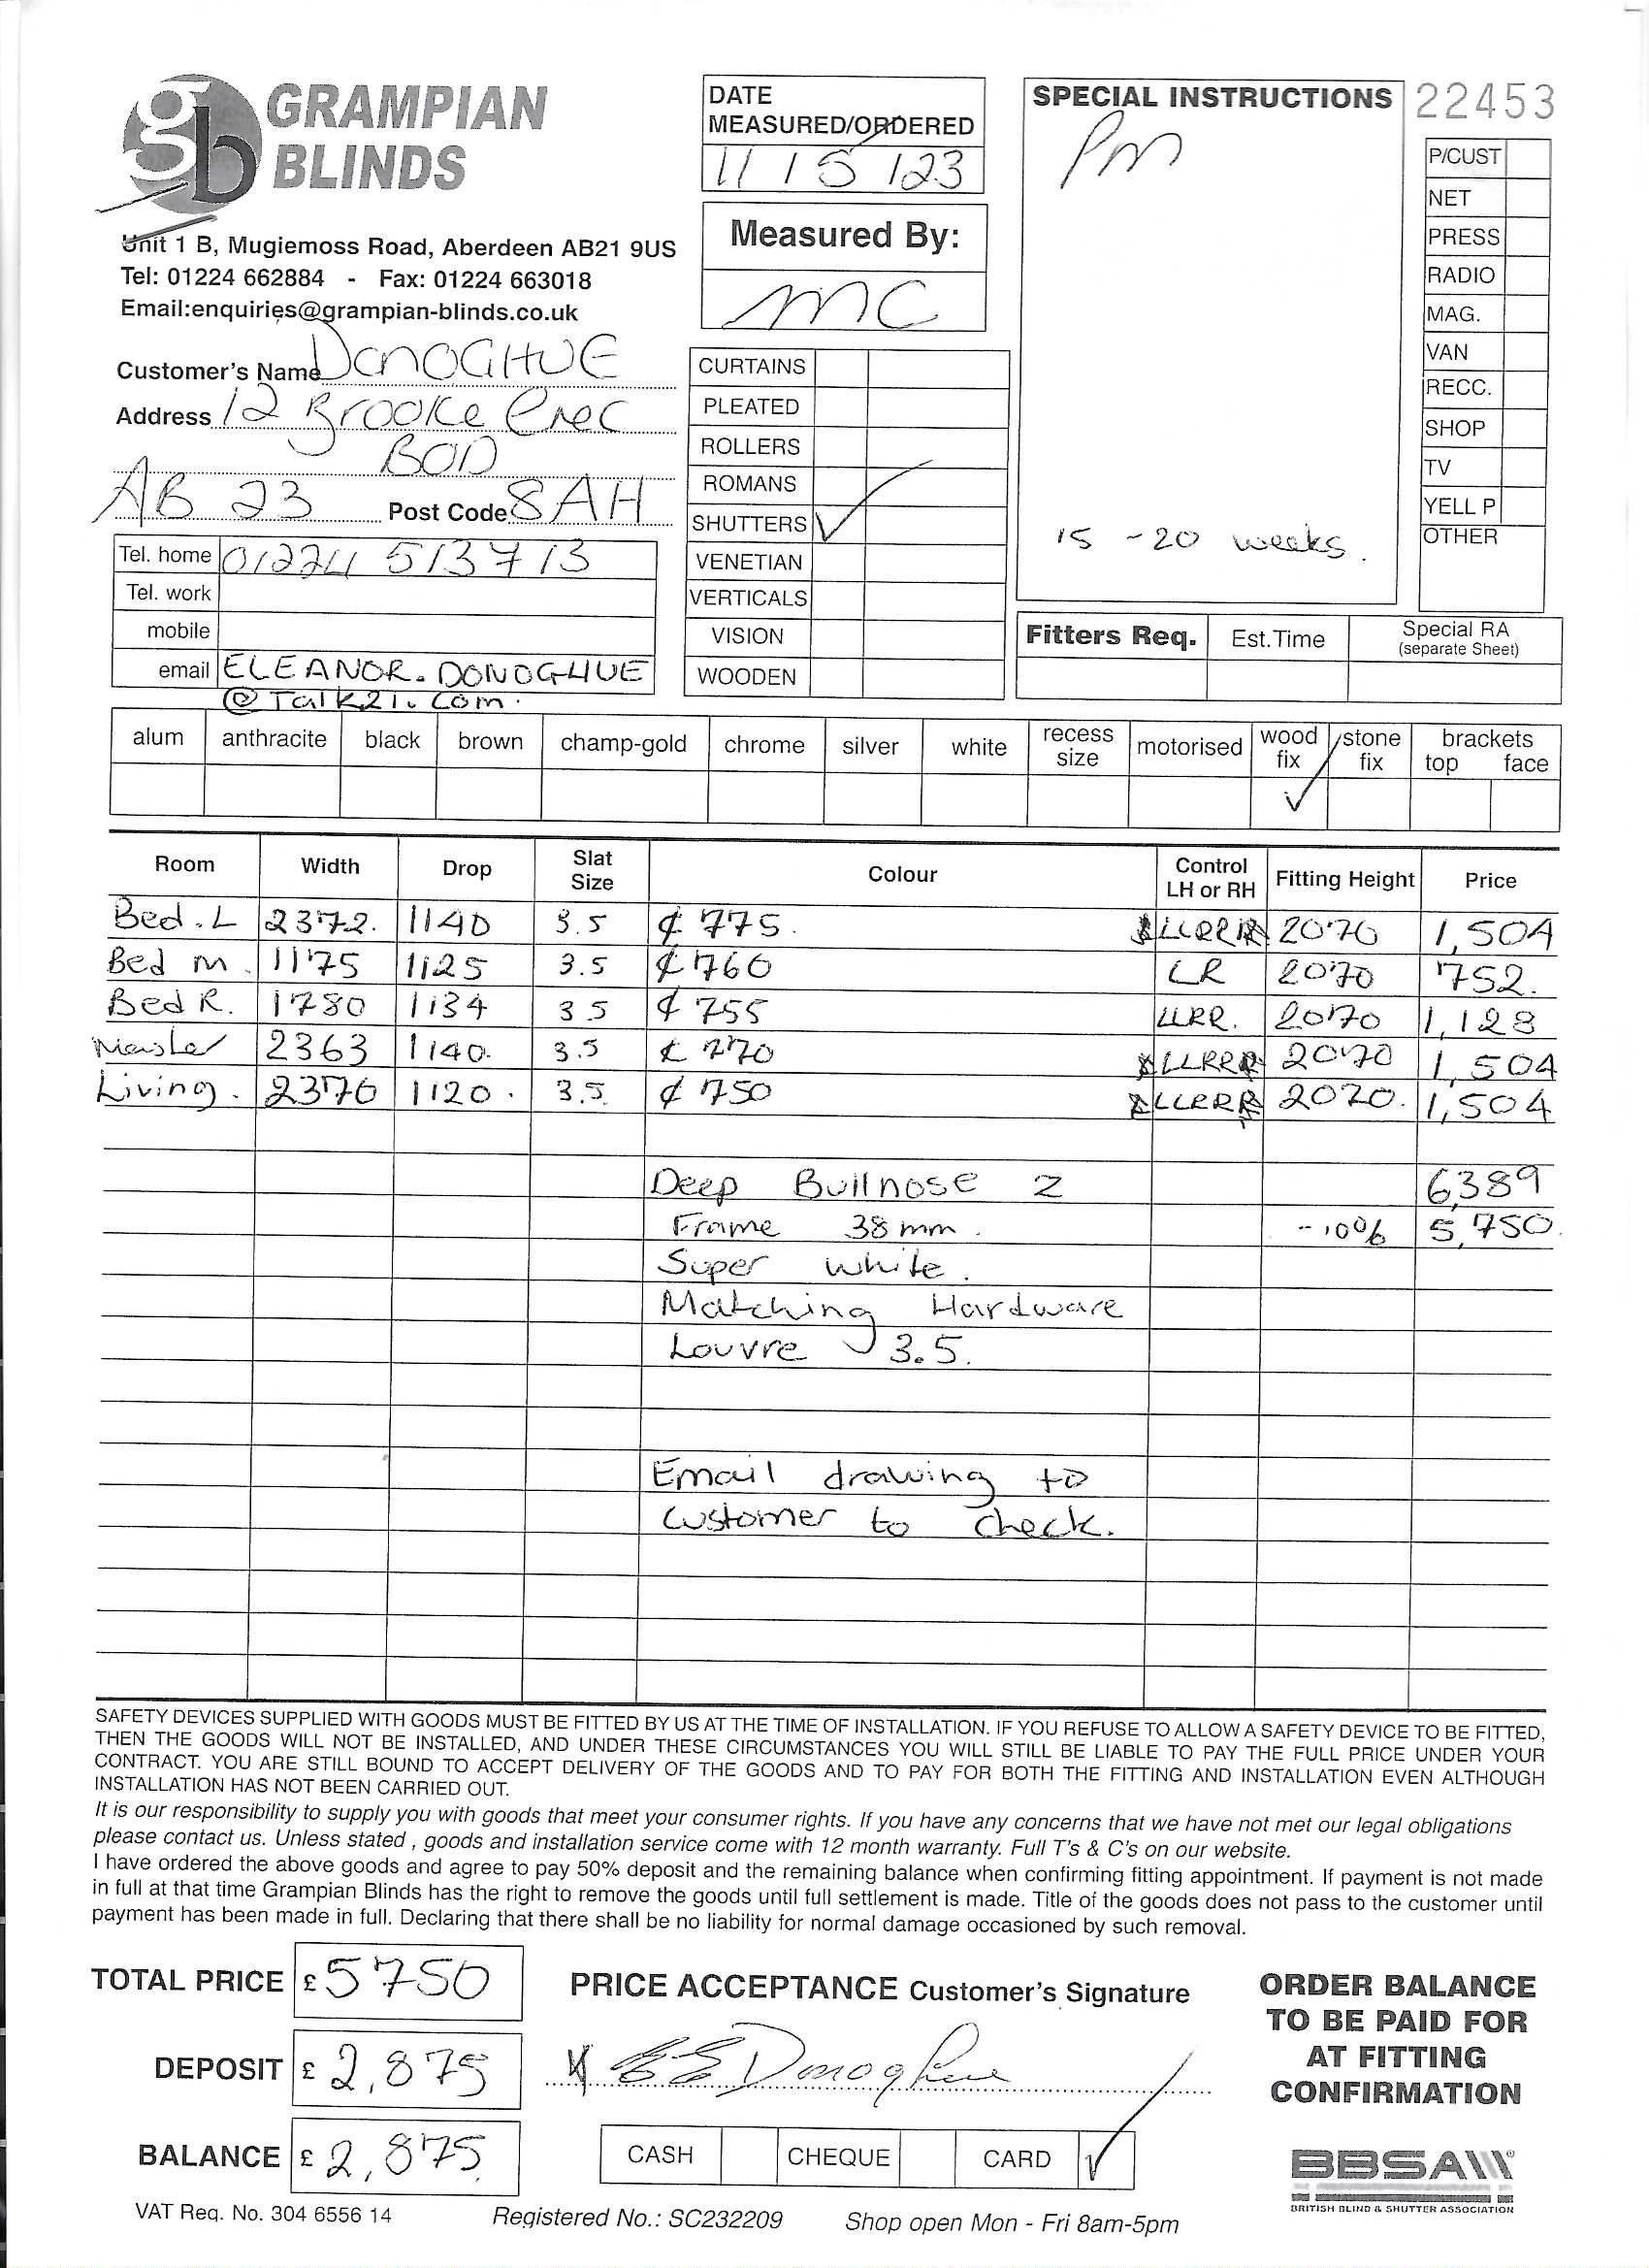 gb GRAMPIAN
BLINDS
Unit 1 B, Mugiemoss Road, Aberdeen AB21 9US
Tel: 01224 662884 - Fax: 01224 663018
Email:enquiries@grampian-blinds.co.uk
DATE
MEASURED/ORDERED
11 / 5 / 23
Measured By:
MC
SPECIAL INSTRUCTIONS
Pm
15 - 20 weeks.
22453
P/CUST
NET
PRESS
RADIO
MAG.
VAN
RECC.
SHOP
TV
YELL P
OTHER
Customer's Name DONOGHUE
Address 12 Brooke Crec
BOD
AB 23 Post Code 8AH
Tel. home 01224 513713
Tel. work
mobile
email ELEANOR.DONOGHUE
@Talk21.com.
CURTAINS
PLEATED
ROLLERS
ROMANS
SHUTTERS ✓
VENETIAN
VERTICALS
VISION
WOODEN
Fitters Req. Est.Time Special RA
(separate Sheet)
alum anthracite black brown champ-gold chrome silver white recess size motorised wood fix stone fix brackets top face
✓
Room Width Drop Slat Size Colour Control LH or RH Fitting Height Price
Bed. L 2372. 1140 3.5 ₵ 775. LLRR 2070 1,504
Bed M. 1175 1125 3.5 ₵ 760 LR 2070 752.
Bed R. 1780 1134 3.5 ₵ 755 LLRR. 2070 1,128
Master 2363 1140. 3.5 ₵ 770 LLRR 2070 1,504
Living. 2370 1120. 3.5. ₵ 750 LLRR 2070. 1,504
Deep Bullnose Z 6,389
Frame 38mm. -10% 5,750.
Super white.
Matching Hardware
Louvre 3.5.
Email drawing to
customer to check.
SAFETY DEVICES SUPPLIED WITH GOODS MUST BE FITTED BY US AT THE TIME OF INSTALLATION. IF YOU REFUSE TO ALLOW A SAFETY DEVICE TO BE FITTED,
THEN THE GOODS WILL NOT BE INSTALLED, AND UNDER THESE CIRCUMSTANCES YOU WILL STILL BE LIABLE TO PAY THE FULL PRICE UNDER YOUR
CONTRACT. YOU ARE STILL BOUND TO ACCEPT DELIVERY OF THE GOODS AND TO PAY FOR BOTH THE FITTING AND INSTALLATION EVEN ALTHOUGH
INSTALLATION HAS NOT BEEN CARRIED OUT.
It is our responsibility to supply you with goods that meet your consumer rights. If you have any concerns that we have not met our legal obligations
please contact us. Unless stated , goods and installation service come with 12 month warranty. Full T's & C's on our website.
I have ordered the above goods and agree to pay 50% deposit and the remaining balance when confirming fitting appointment. If payment is not made
in full at that time Grampian Blinds has the right to remove the goods until full settlement is made. Title of the goods does not pass to the customer until
payment has been made in full. Declaring that there shall be no liability for normal damage occasioned by such removal.
TOTAL PRICE £5750
DEPOSIT £2,875
BALANCE £2,875
PRICE ACCEPTANCE Customer's Signature
x EE Donoghue
CASH CHEQUE CARD ✓
ORDER BALANCE
TO BE PAID FOR
AT FITTING
CONFIRMATION
BBSA
BRITISH BLIND & SHUTTER ASSOCIATION
VAT Reg. No. 304 6556 14 Registered No.: SC232209 Shop open Mon - Fri 8am-5pm